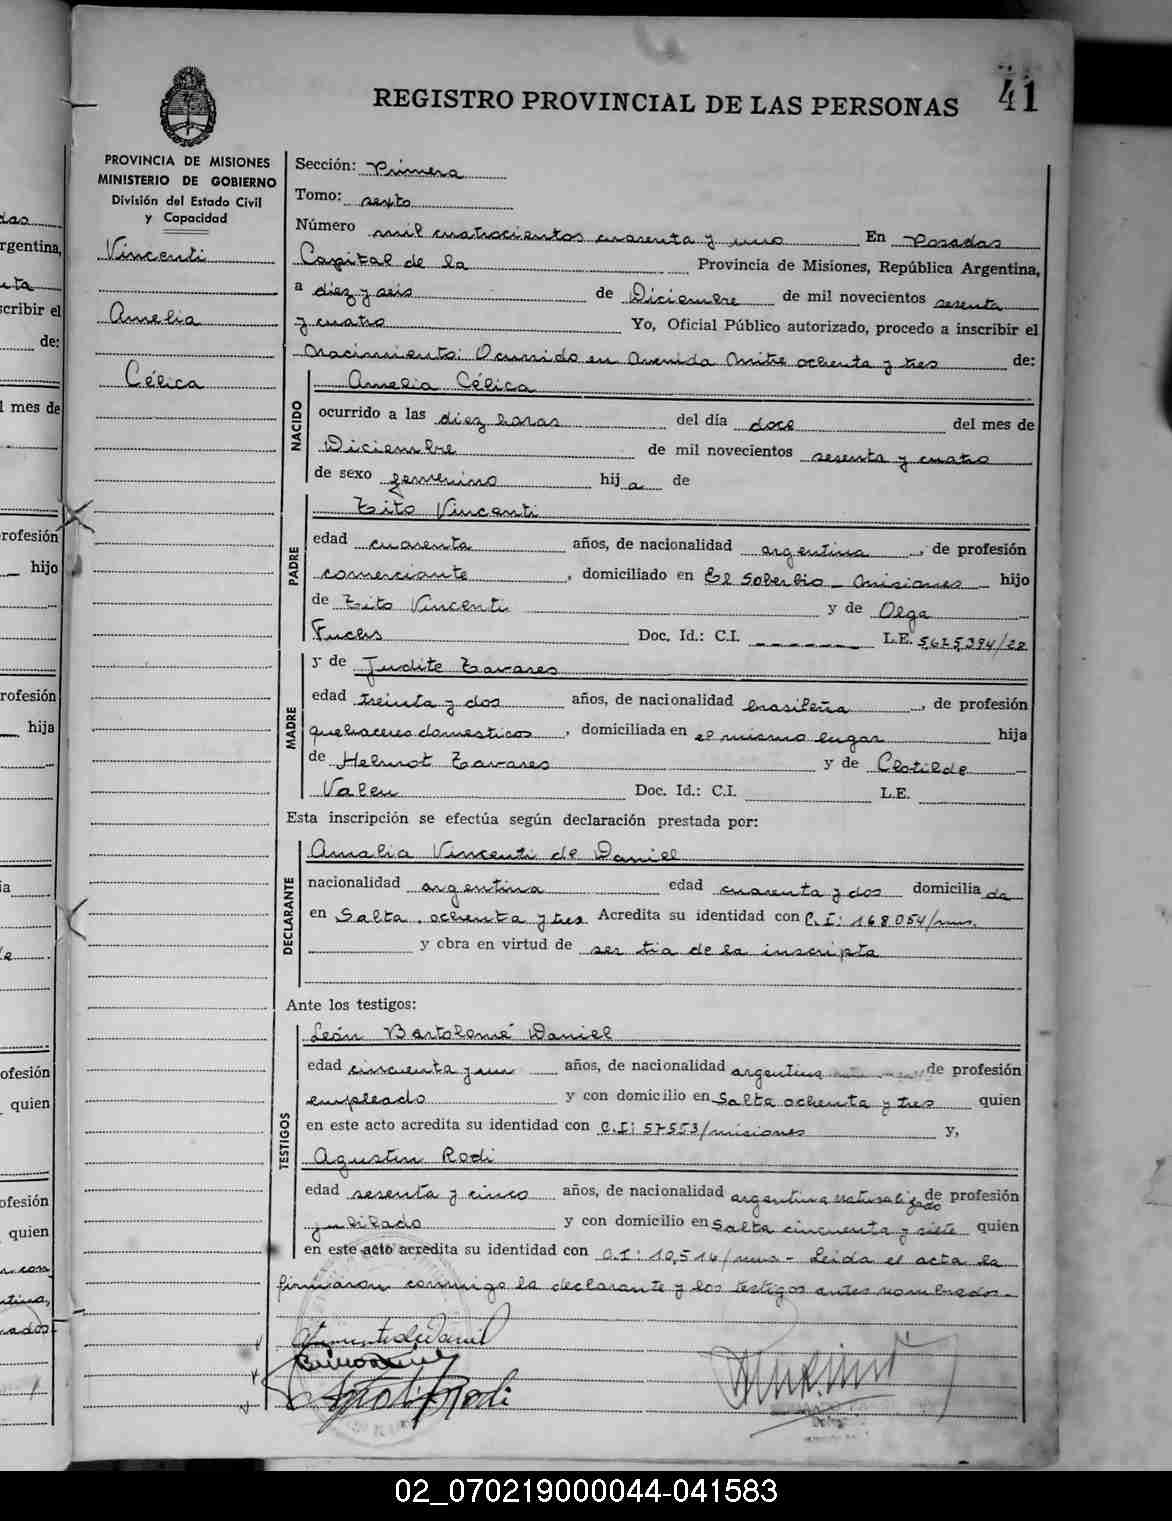 REGISTRO PROVINCIAL DE LAS PERSONAS
41
PROVINCIA DE MISIONES
MINISTERIO DE GOBIERNO
División del Estado Civil
y Capacidad
Vincenti
Amelia
Célica
Sección: Primera
Tomo: sexto
Número mil cuatrocientos cuarenta y uno En Posadas
Capital de la Provincia de Misiones, República Argentina,
a diez y seis de Diciembre de mil novecientos sesenta
y cuatro Yo, Oficial Público autorizado, procedo a inscribir el
Nacimiento: Ocurrido en Avenida Mitre ochenta y tres de:
NACIDO
Amelia Célica
ocurrido a las diez horas del día doce del mes de
Diciembre de mil novecientos sesenta y cuatro
de sexo femenino hija de
PADRE
Zito Vincenti
edad cuarenta años, de nacionalidad argentina, de profesión
comerciante, domiciliado en El Soberbio - Misiones hijo
de Zito Vincenti y de Olga
Fuchs Doc. Id.: C.I. L.E. 5,625,394/22
MADRE
y de Judite Tavares
edad treinta y dos años, de nacionalidad brasileña, de profesión
quehaceres domesticos, domiciliada en el mismo lugar hija
de Helmot Tavares y de Clotilde
Valeu Doc. Id.: C.I. L.E.
Esta inscripción se efectúa según declaración prestada por:
DECLARANTE
Amalia Vincenti de Daniel
nacionalidad argentina edad cuarenta y dos domiciliada
en Salta, ochenta y tres Acredita su identidad con C.I: 168.054/mns.
y obra en virtud de ser tia de la inscripta
Ante los testigos:
TESTIGOS
León Bartolomé Daniel
edad cincuenta y un años, de nacionalidad argentina de profesión
empleado y con domicilio en Salta ochenta y tres quien
en este acto acredita su identidad con C.I: 57553/misiones y,
Agustin Rodi
edad sesenta y cinco años, de nacionalidad argentina naturalizado de profesión
jubilado y con domicilio en Salta cincuenta y siete quien
en este acto acredita su identidad con C.I: 10,516/mns - Leida el acta la
firmaron conmigo la declarante y los testigos antes nombrados.-
02_070219000044-041583